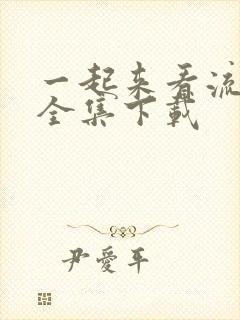 一起来看流
全集下载
尹爱平